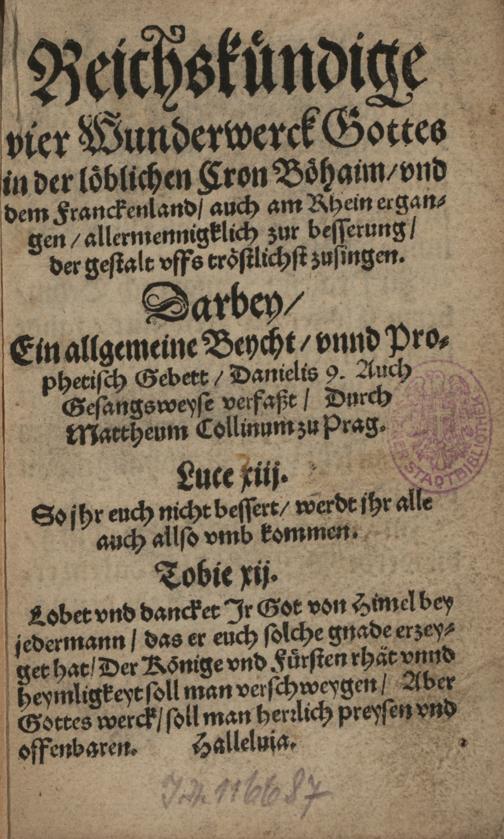 Reichskündige
vier Wunderwerck Gottes
in der löblichen Cron Böhaim/ vnd
dem Franckenland/ auch am Rhein ergan⸗
gen/ allermennigklich zur besserung/
der gestalt vffs tröstlichst zusingen.
Darbey/
Ein allgemeine Beycht/ vnnd Pro⸗
phetisch Gebett/ Danielis 9. Auch
Gesangsweyse verfaßt/ Durch
Mattheum Collinum zu Prag.
Luce xiij.
So jhr euch nicht bessert/ werdt jhr alle
auch allso vmb kommen.
Tobie xij.
Lobet vnd dancket Jr Got von Himel bey
jedermann/ das er euch solche gnade erzey⸗
get hat/ Der Könige vnd Fürsten rhät vnnd
heymligkeyt soll man verschweygen/ Aber
Gottes werck/ soll man herrlich preysen vnd
offenbaren. Halleluia.
STADTBIBLIOTHEK
116687